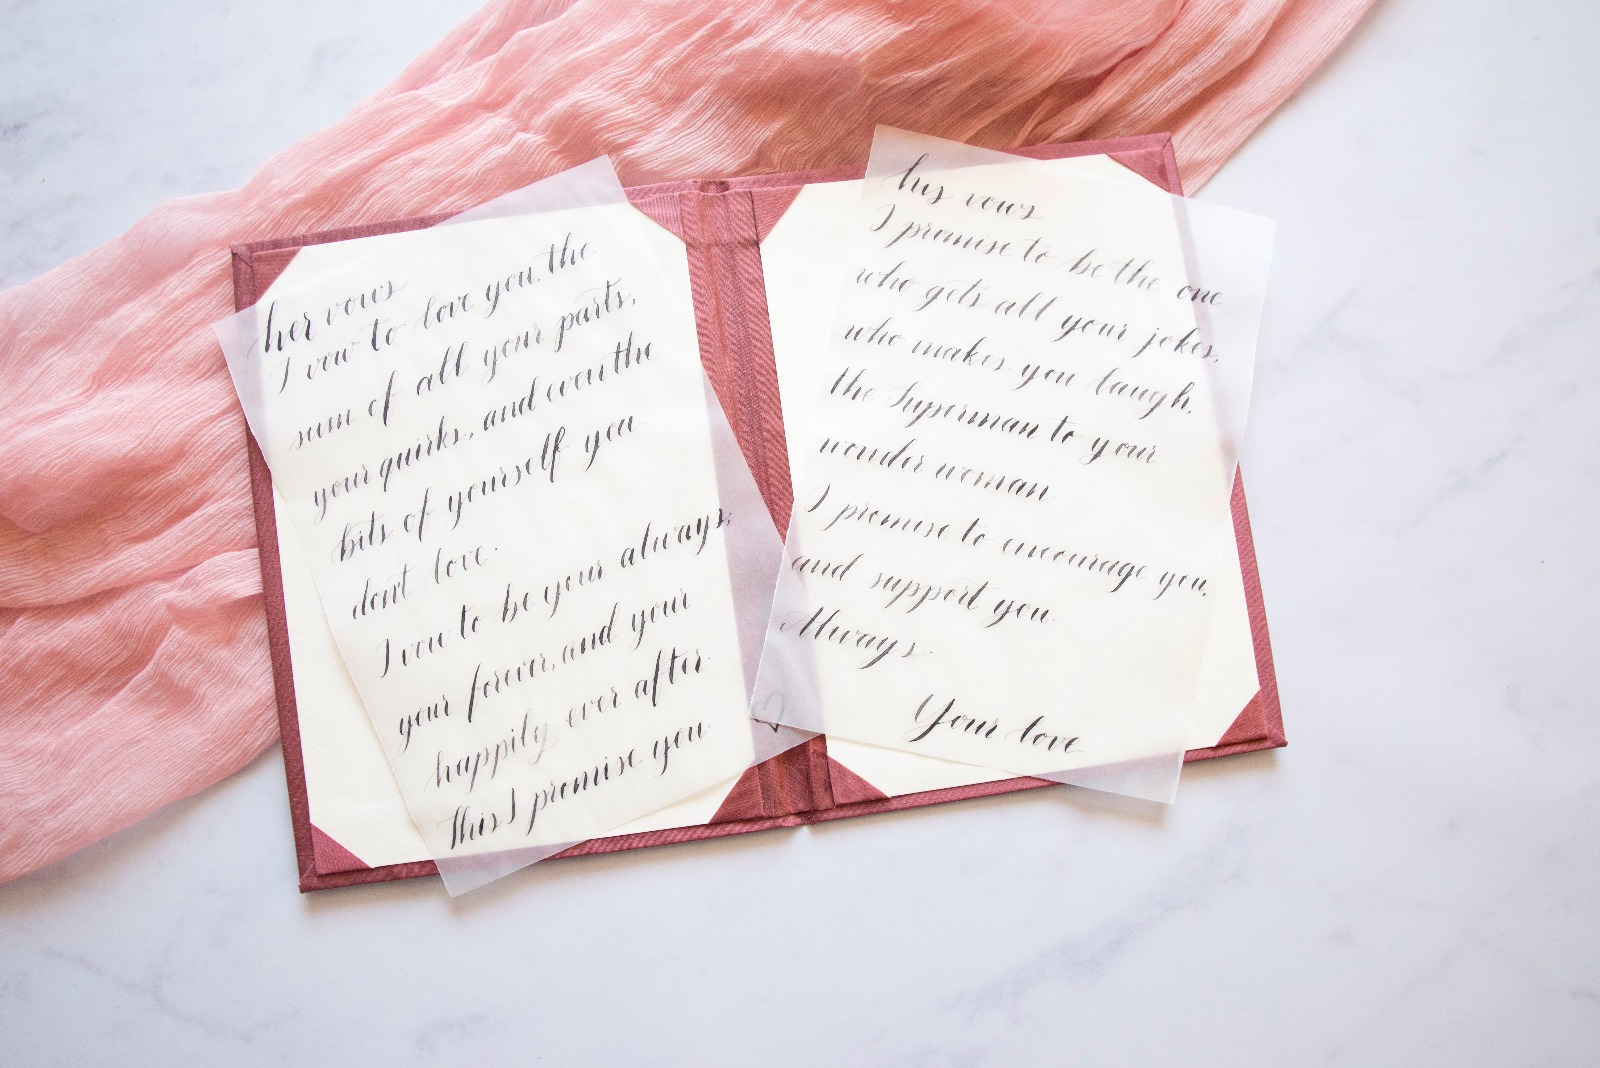 her vows
I vow to love you, the
sum of all your parts,
your quirks, and even the
bits of yourself you
don't love.
I vow to be your always,
your forever, and your
happily ever after.
This I promise you.
his vows
I promise to be the one
who gets all your jokes,
who makes you laugh,
the Superman to your
wonder woman.
I promise to encourage you,
and support you.
Always.
Your love